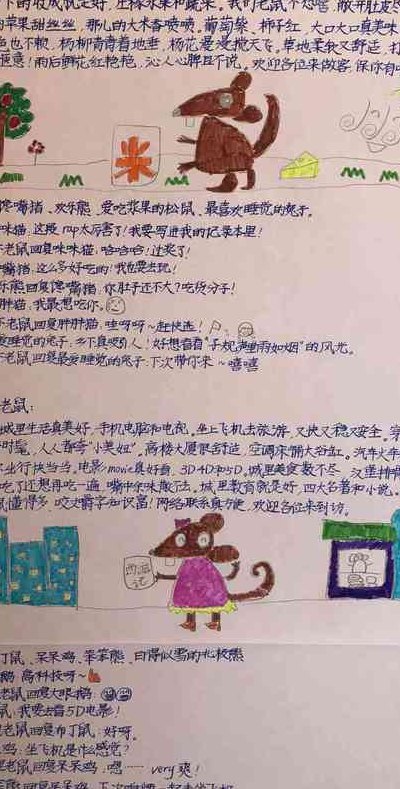 下的收成就是好,庄稼水果和蔬菜。我们老鼠不忽嘻,敞开肚皮尽
的苹果甜丝丝,那儿的大木香喷喷,葡萄紫,柿子红,大口大口真美味
色也不赖,杨柳青青着地垂,杨花漫漫搅天飞,草地柔软又舒适,打
惬意!雨后鲜花红艳艳,沁人心脾且不说。欢迎各位来做客,保你有吃
米
馋嘴猪、欢乐熊、爱吃浆果的松鼠、最喜欢睡觉的兔子。
咪猫:这段rap太厉害了!我要写进我的记录本里!
老鼠回复咪咪猫:哈哈哈!过奖了!
嘴猪:这么多好吃的!我也要去玩!
乐熊回复馋嘴猪:你肚子还不大?吃货分子!
胖猫:我最想吃你。
老鼠回复胖胖猫:哇呀呀~赶快逃!
爱睡觉的兔子:乡下真吸引人!好想看看“子规声里雨如烟”的风光。
老鼠回复最爱睡觉的兔子:下次带你来~嘻嘻
老鼠:
城里生活真美好,手机电脑和电视。坐上飞机去旅游,又快又稳又安全。穿
时髦,人人都夸“小美妞”。高楼大厦很舒适,空调床铺大浴缸。汽车火车
业行快当当。电影movie真好看,3D4D和5D。城里美食数不尽,汉堡排
吃了还想再吃一遍,嘴中余味散不去。城里教育就是好,四大名著和小说。
鼠懂得多,咬文嚼字知识富!网络联系真方便,欢迎各位来到访。
西游
记
丁鼠、呆呆鸡、笨笨熊、白得似雪的北极熊
鹅:高科技呀~
老鼠回复大眼鹅:
鼠:我要去看5D电影!
老鼠回复布丁鼠:好呀。
鸡:坐飞机是什么感觉?
老鼠回复呆呆鸡:嗯…… very爽!